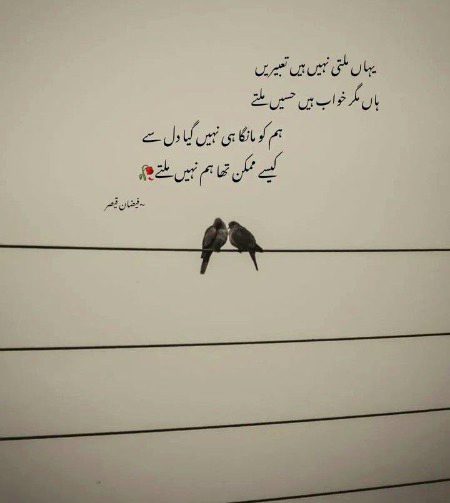 یہاں ملتی نہیں ہیں تعبیریں
ہاں مگر خواب ہیں حسیں ملتے
ہم کو مانگا ہی نہیں گیا دل سے
کیسے ممکن تھا ہم نہیں ملتے🥀
~فیضان قیصر